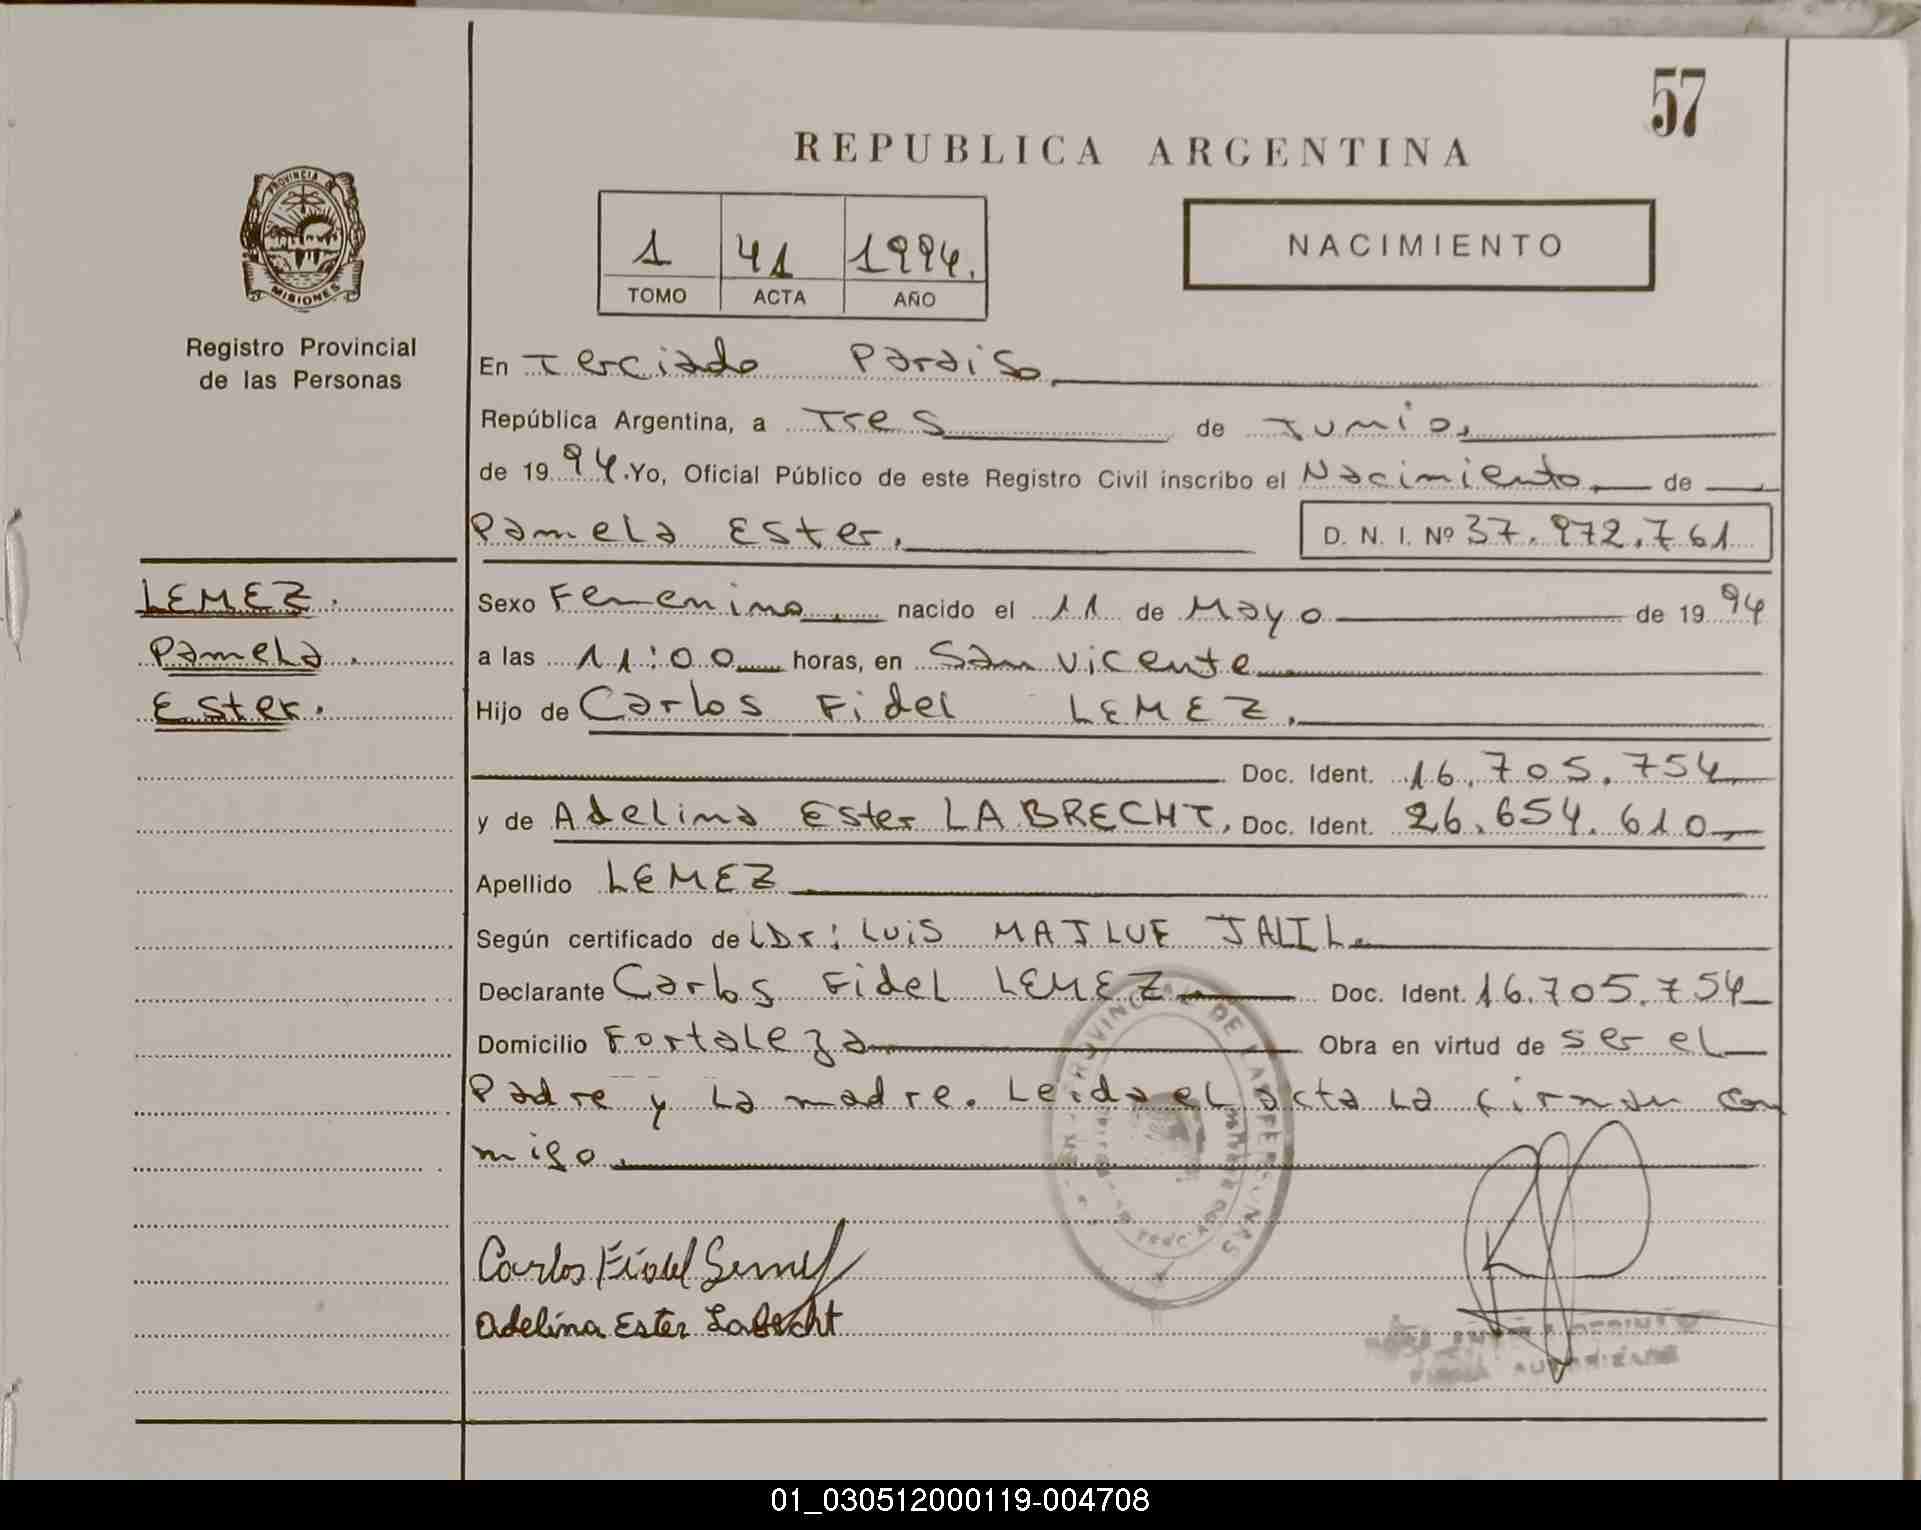 57
REPUBLICA ARGENTINA
PROVINCIA DE
MISIONES
1 41 1994.
TOMO ACTA AÑO
NACIMIENTO
Registro Provincial
de las Personas
En Terciado Paraiso.
República Argentina, a Tres de Junio,
de 19 94. Yo, Oficial Público de este Registro Civil inscribo el Nacimiento de
Pamela Ester. D. N. I. Nº 37.972.761
LEMEZ.
Pamela.
Ester.
Sexo Femenino, nacido el 11 de Mayo de 19 94
a las 11:00 horas, en San Vicente
Hijo de Carlos Fidel LEMEZ.
Doc. Ident. 16.705.754
y de Adelina Ester LABRECHT. Doc. Ident. 26.654.610
Apellido LEMEZ
Según certificado de Dr: Luis JALIL.
Declarante Carlos Fidel LEMEZ Doc. Ident. 16.705.754
Domicilio Fortaleza Obra en virtud de ser el
Padre y La madre. Leida el acta La firman con
migo.
PROVINCIAL DE LAS PERSONAS
Carlos Fidel Lemez
Adelina Ester Labrecht
FIRMA AUTORIZADA
01_030512000119-004708